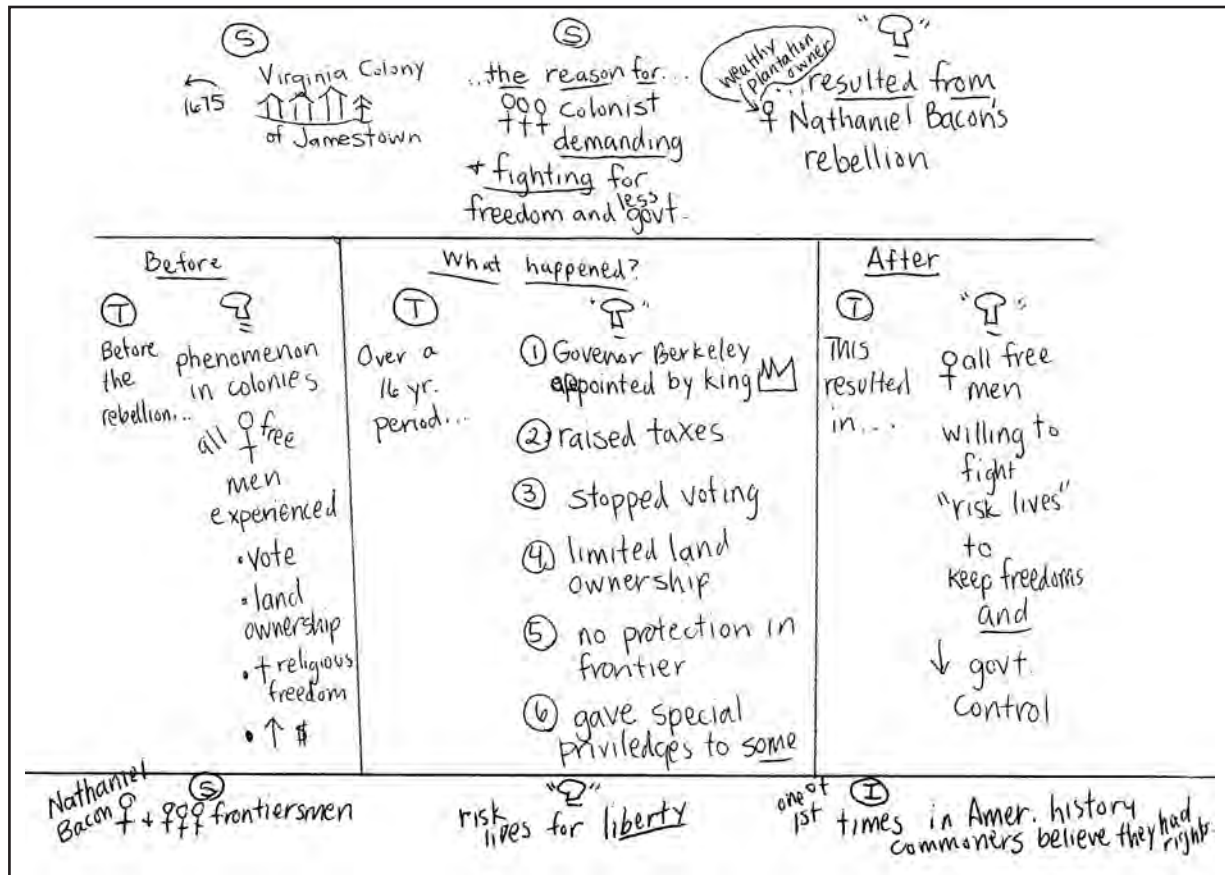 S
1675
Virginia Colony
of Jamestown
S
...the reason for...
colonist
demanding
+ fighting for
freedom and less govt.
wealthy
plantation
owner
" "
...resulted from
Nathaniel Bacon's
rebellion
Before
T
Before
the
rebellion...
phenomenon
in colonies
all free
men
experienced
• vote
• land
ownership
• + religious
freedom
• ↑ $
What happened?
T
Over a
16 yr.
period...
" "
① Govenor Berkeley
appointed by king
② raised taxes
③ stopped voting
④ limited land
ownership
⑤ no protection in
frontier
⑥ gave special
priviledges to some
After
T
This
resulted
in...
" "
all free
men
willing to
fight
"risk lives"
to
keep freedoms
and
↓ govt.
control
Nathaniel
Bacon + frontiersmen
S
" "
risk
lives for liberty
I
one of
1st times in Amer. history
commoners believe they had
rights.